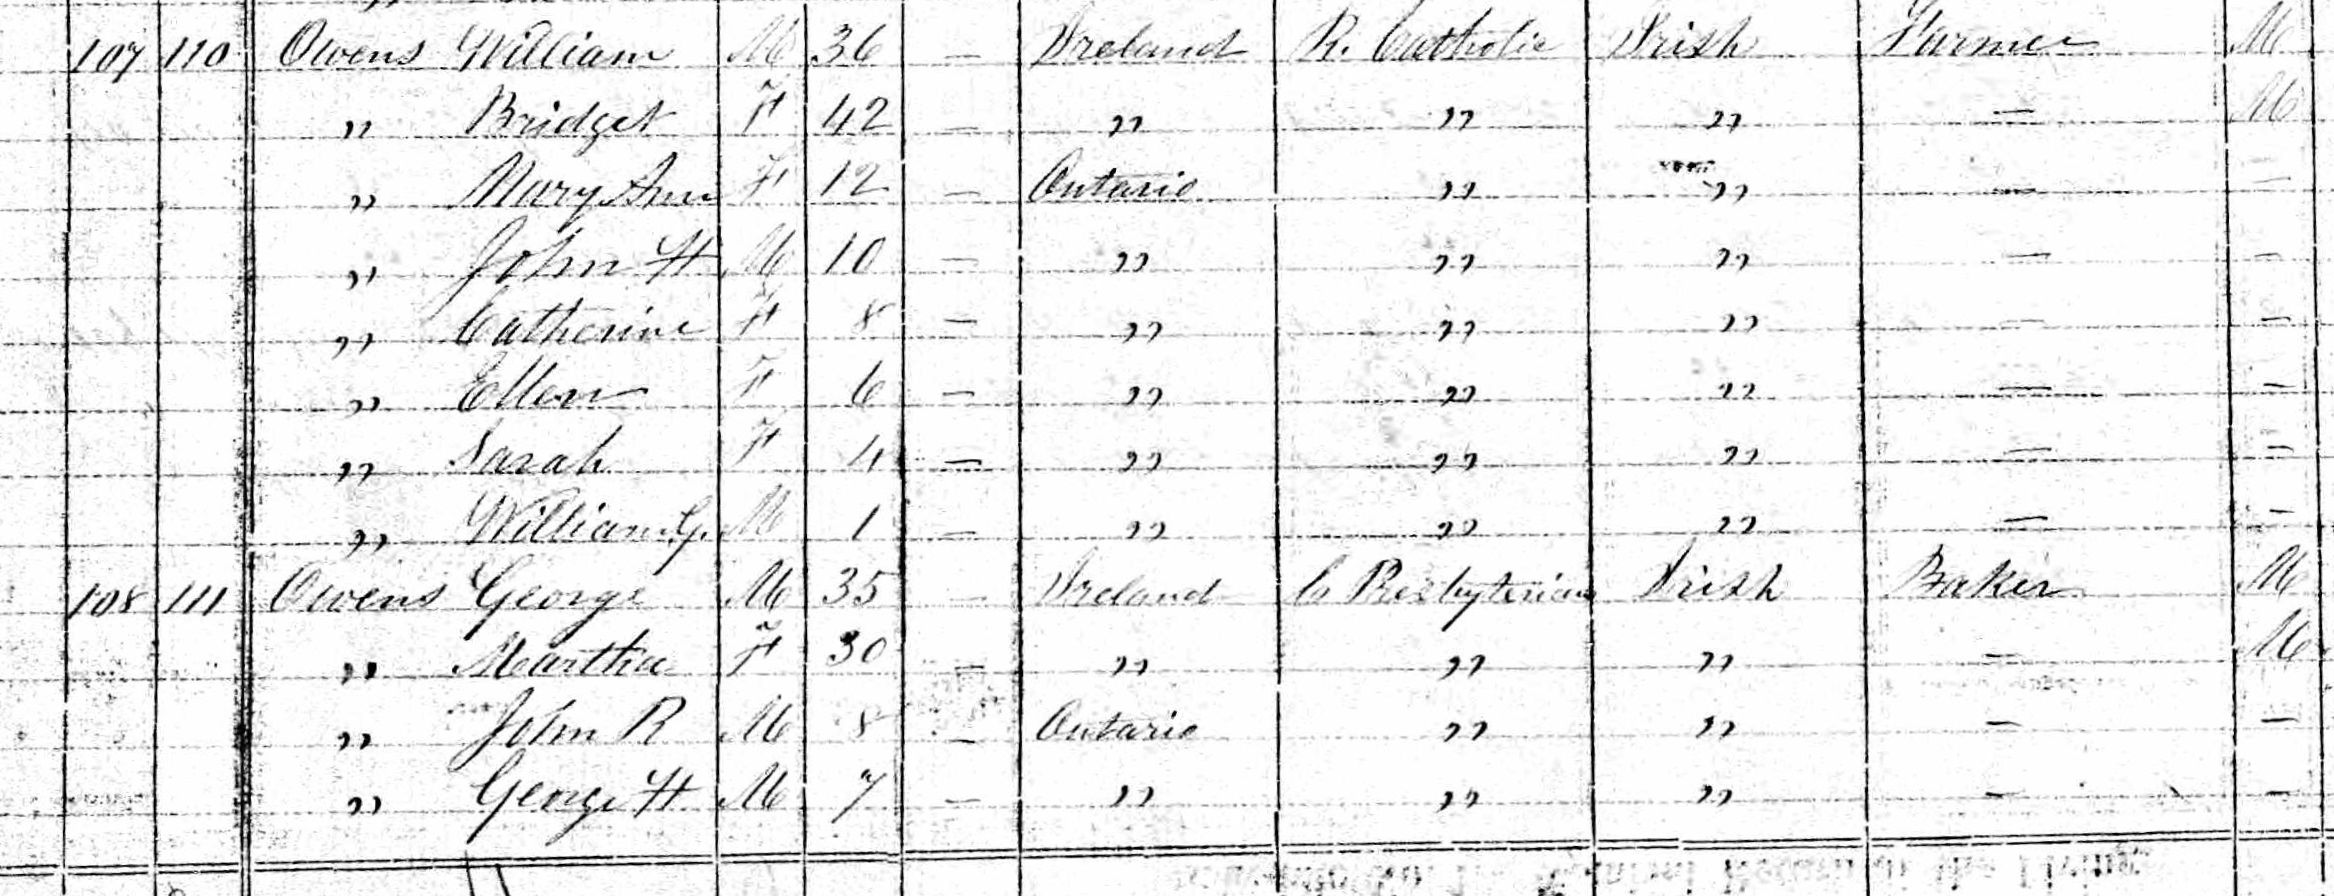 107 110 Owens William M 36 — Ireland R. Catholic Irish Farmer M
" Bridget F 42 — " " " — M
" Mary Ann F 12 — Ontario " " — —
" John H M 10 — " " " — —
" Catherine F 8 — " " " — —
" Ellen F 6 — " " " — —
" Sarah F 4 — " " " — —
" William G. M 1 — " " " — —
108 111 Owens George M 35 — Ireland C Presbyterian Irish Baker M
" Martha F 30 — " " " — M
" John R M 8 — Ontario " " — —
" George H M 7 — " " " — —